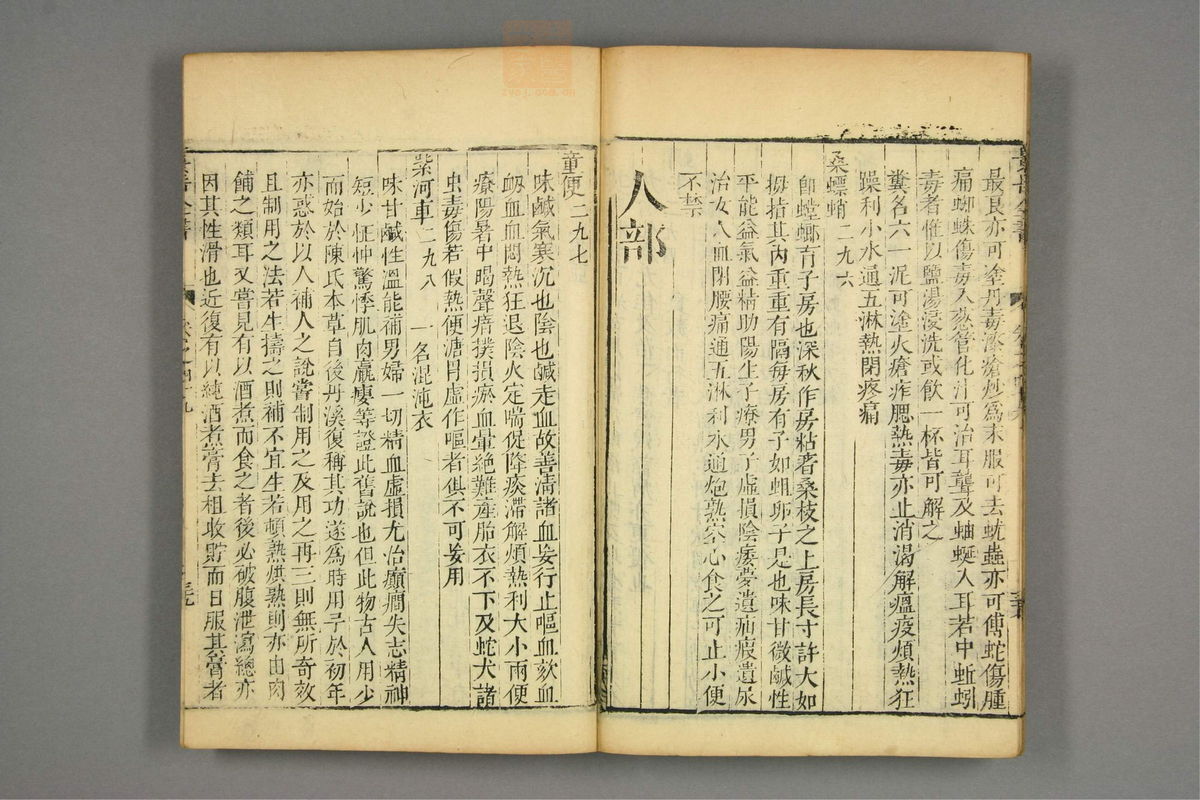 最良亦可塗丹毒涂瘡炒爲末服可去蚘蟲亦可傅蛇傷腫
痛蜘蛛傷毒入葱管化汁可治耳聾及蚰蜒入耳若中蚯蚓
毒者惟以鹽湯浸洗或飲一杯皆可解之
糞名六一泥可塗火瘡痄腮熱毒亦止消渴解瘟疫煩熱狂
躁利小水通五淋熱閉疼痛
桑螵蛸二九六
卽螳螂育子房也深秋作房粘著桑枝之上房長寸許大如
拇指其內重重有隔每房有子如蛆卵子是也味甘微鹹性
平能益氣益精助陽生子療男子虛損陰痿夢遺疝瘕遺尿
治女人血閉腰痛通五淋利水道炮熟空心食之可止小便
不禁
人部
童便二九七
味鹹氣寒沉也陰也鹹走血故善清諸血妄行止嘔血欬血
衂血血悶熱狂退陰火定喘促降痰滯解煩熱利大小兩便
療陽暑中暍聲瘖撲損瘀血暈絕難產胎衣不下及蛇犬諸
虫毒傷若假熱便溏胃虛作嘔者俱不可妄用
紫河車二九八 一名混沌衣
味甘鹹性溫能補男婦一切精血虛損尤治癲癎失志精神
短少怔忡驚悸肌肉羸瘦等證此舊說也但此物古人用少
而始於陳氏本草自後丹溪復稱其功遂爲時用予於初年
亦惑於以人補人之說嘗制用之及用之再三則無所奇效
且制用之法若生擣之則補不宜生若頓熱烘熟則亦由肉
餔之類耳又嘗見有以酒煮而食之者後必破腹泄瀉總亦
因其性滑也近復有以純酒煮膏去柤收貯而日服其膏者